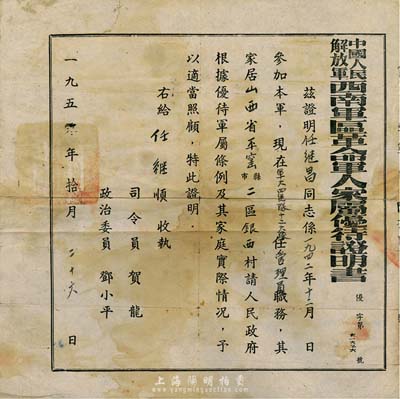 中國人民
解放軍
西南軍區革命軍人家屬優待證明書
優字第 號
茲證明任继昌同志係一九四二年十二月 日
參加本軍，現在 任管理員職務，其
家居山西省平 縣市二區銀西村請人民政府
根據優待軍屬條例及其家庭實際情況，予
以適當照顧，特此證明。
右給 任继順 收執
司令員 賀龍
政治委員 鄧小平
一九五 年 拾 月 二十六 日
上海陽明拍賣
www.yangmingauction.com